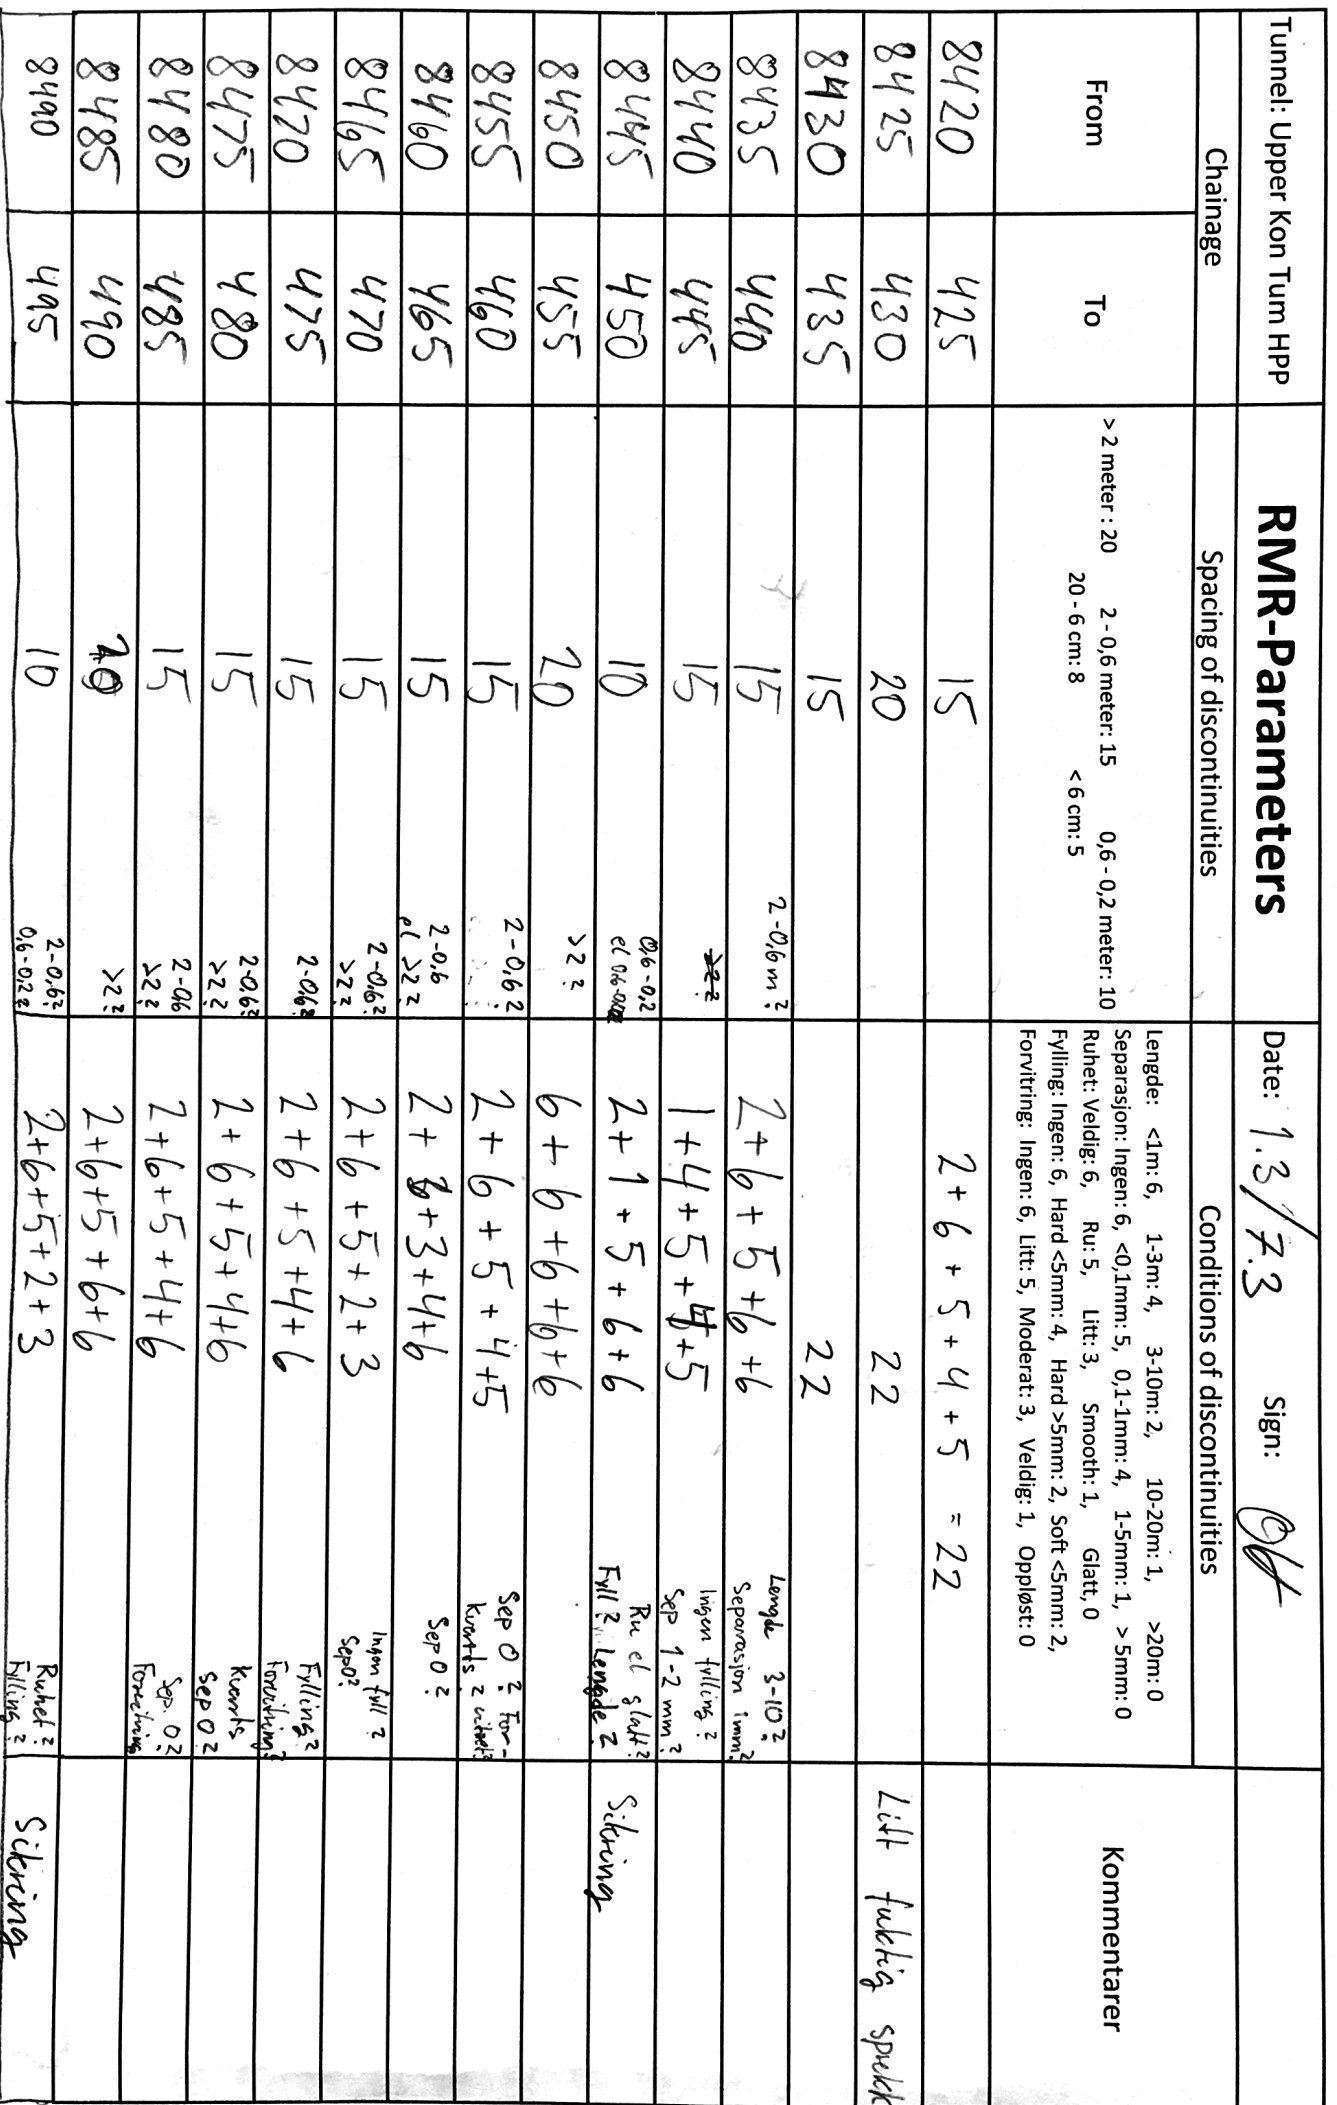 Tunnel: Upper Kon Tum HPP RMR-Parameters Date: 1.3/7.3 Sign:
Chainage Spacing of discontinuities Conditions of discontinuities
From To Kommentarer
> 2 meter : 20 2 - 0,6 meter: 15 0,6 - 0,2 meter: 10
20 - 6 cm: 8 < 6 cm: 5
Lengde: <1m: 6, 1-3m: 4, 3-10m: 2, 10-20m: 1, >20m: 0
Separasjon: Ingen: 6, <0,1mm: 5, 0,1-1mm: 4, 1-5mm: 1, > 5mm: 0
Ruhet: Veldig: 6, Ru: 5, Litt: 3, Smooth: 1, Glatt, 0
Fylling: Ingen: 6, Hard <5mm: 4, Hard >5mm: 2, Soft <5mm: 2,
Forvitring: Ingen: 6, Litt: 5, Moderat: 3, Veldig: 1, Oppløst: 0
8420 425 15 2 + 6 + 5 + 4 + 5 = 22
8425 430 20 22 Litt fuktig sprekk
8430 435 15 22
8435 440 15 2-0,6 m? 2+6+5+6+6 Lengde 3-10?
Separasjon i mm?
8440 445 15 >2? 1+4+5+4+5 Ingen fylling?
Sep 1-2 mm?
8445 450 10 0,6-0,2 2+1+5+6+6 Ru el glatt? Sikring
el Fyll? Lengde?
8450 455 20 >2? 6+6+6+6+6
8455 460 15 2-0,6? 2+6+5+4+5 Sep 0? For-
Kvarts? vitret?
8460 465 15 2-0,6 2+6+3+4+6 Sep 0?
el >2?
8465 470 15 2-0,6? 2+6+5+2+3 Ingen fyll?
>2? Sep 0?
8470 475 15 2-0,6? 2+6+5+4+6 Fylling?
Forvitring?
8475 480 15 2-0,6? 2+6+5+4+6 Kvarts
>2? Sep 0?
8480 485 15 2-0,6 2+6+5+4+6 Sep. 0?
>2? Forvitring
8485 490 20 >2? 2+6+5+6+6
8490 495 10 2-0,6? 2+6+5+2+3 Ruhet? Sikring
0,6-0,2? Fylling?